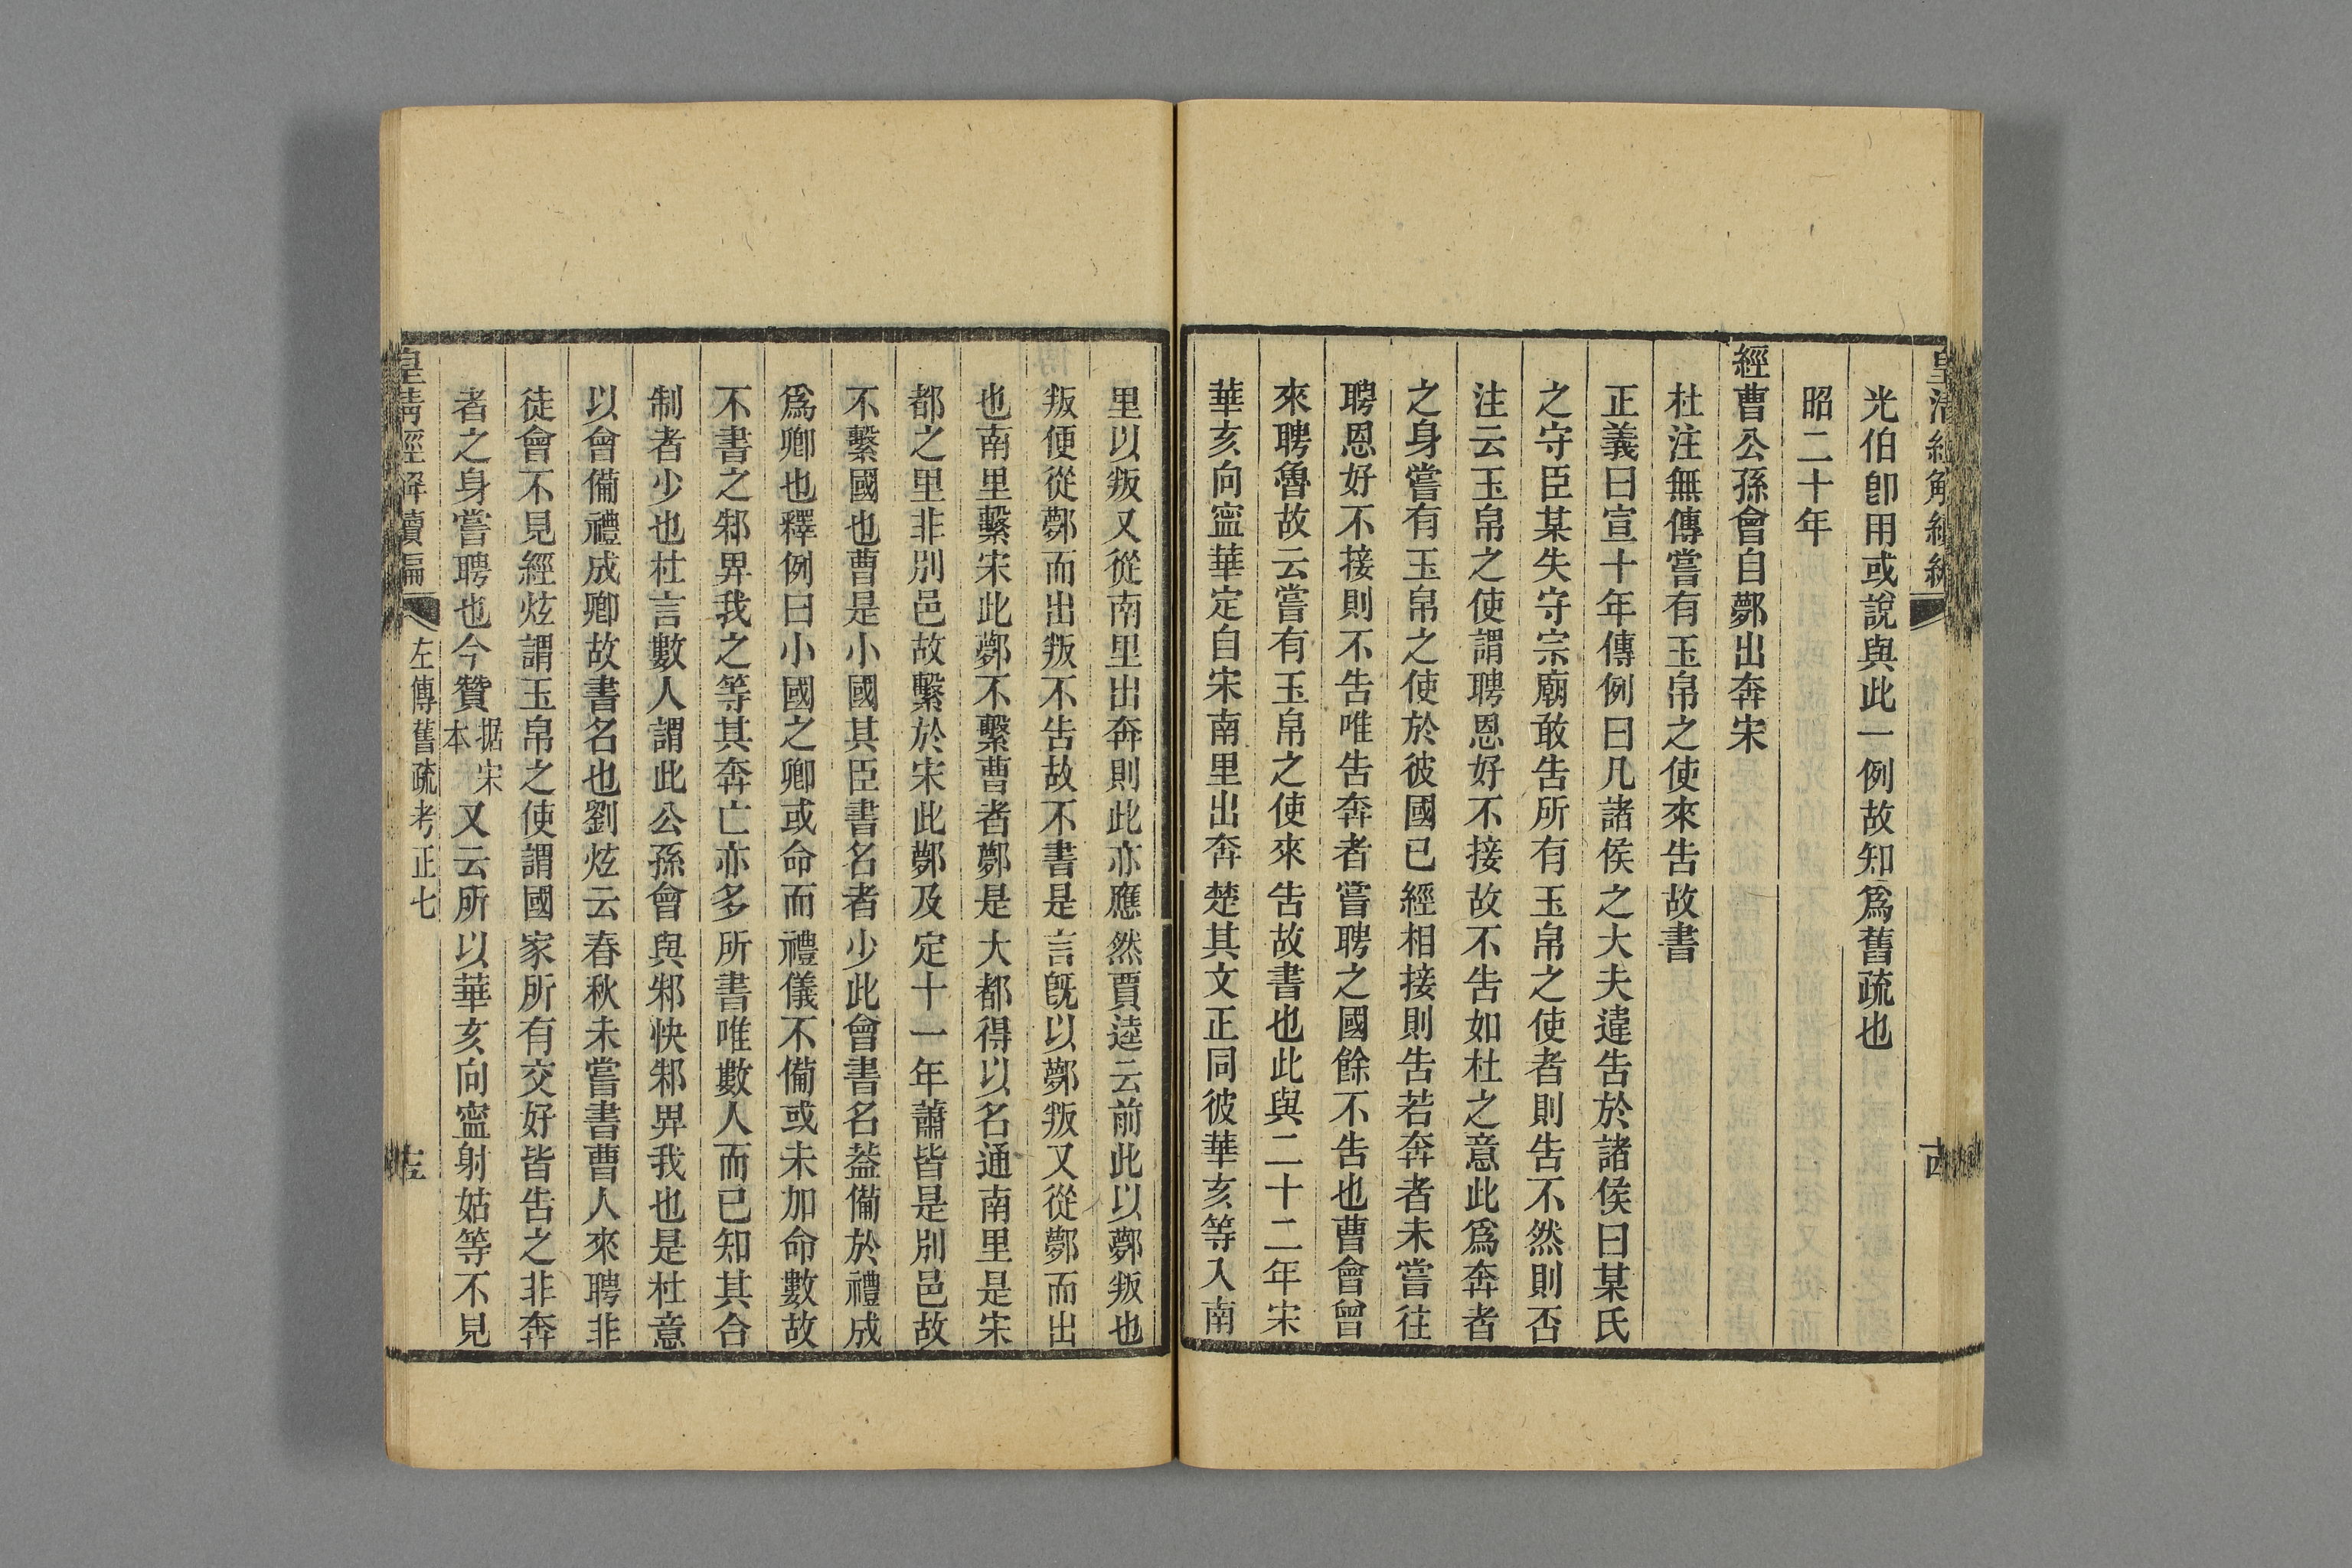 皇清經解續編
光伯卽用或說與此一例故知爲舊疏也
昭二十年
經曹公孫會自鄸出奔宋
杜注無傳嘗有玉帛之使來告故書
正義曰宣十年傳例曰凡諸侯之大夫違告於諸侯曰某氏
之守臣某失守宗廟敢告所有玉帛之使者則告不然則否
注云玉帛之使謂聘恩好不接故不告如杜之意此爲奔者
之身嘗有玉帛之使於彼國已經相接則告若奔者未嘗往
聘恩好不接則不告唯告奔者嘗聘之國餘不告也曹會曾
來聘魯故云嘗有玉帛之使來告故書也此與二十二年宋
華亥向寍華定自宋南里出奔楚其文正同彼華亥等入南
里以叛又從南里出奔則此亦應然賈逵云前此以鄸叛也
叛便從鄸而出叛不告故不書是言旣以鄸叛又從鄸而出
也南里繫宋此鄸不繫曹者鄸是大都得以名通南里是宋
都之里非別邑故繫於宋此鄸及定十一年蕭皆是別邑故
不繫國也曹是小國其臣書名者少此會書名葢備於禮成
爲卿也釋例曰小國之卿或命而禮儀不備或未加命數故
不書之邾畀我之等其奔亡亦多所書唯數人而已知其合
制者少也杜言數人謂此公孫會與邾快邾畀我也是杜意
以會備禮成卿故書名也劉炫云春秋未嘗書曹人來聘非
徒會不見經炫謂玉帛之使謂國家所有交好皆告之非奔
者之身嘗聘也今贊据宋本又云所以華亥向寍射姑等不見
皇清經解續編 左傳舊疏考正七